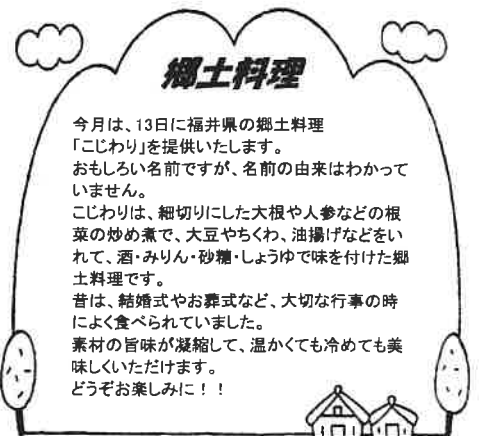 郷土料理
今月は、13日に福井県の郷土料理
「こじわり」を提供いたします。
おもしろい名前ですが、名前の由来はわかって
いません。
こじわりは、細切りにした大根や人参などの根
菜の炒め煮で、大豆やちくわ、油揚げなどをい
れて、酒・みりん・砂糖・しょうゆで味を付けた郷
土料理です。
昔は、結婚式やお葬式など、大切な行事の時
によく食べられていました。
素材の旨味が凝縮して、温かくても冷めても美
味しくいただけます。
どうぞお楽しみに！！